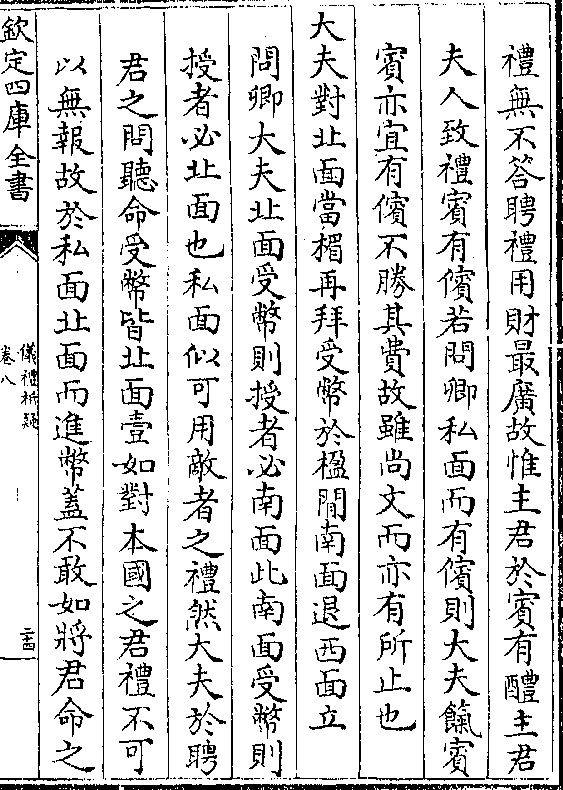 禮無不答聘禮用財最廣故惟主君於賓有醴主君
夫人致禮賓有儐若問卿私面而有儐則大夫餼賓
賓亦宜有儐不勝其費故雖尚文而亦有所止也
大夫對北面當楣再拜受幣於楹間南面退西面立
問卿大夫北面受幣則授者必南面此南面受幣則
授者必北面也私面似可用敵者之禮然大夫於聘
君之問聽命受幣皆北面壹如對本國之君禮不可
以無報故於私面北面而進幣蓋不敢如將君命之
欽定四庫全書
儀禮析疑
卷八
二十四